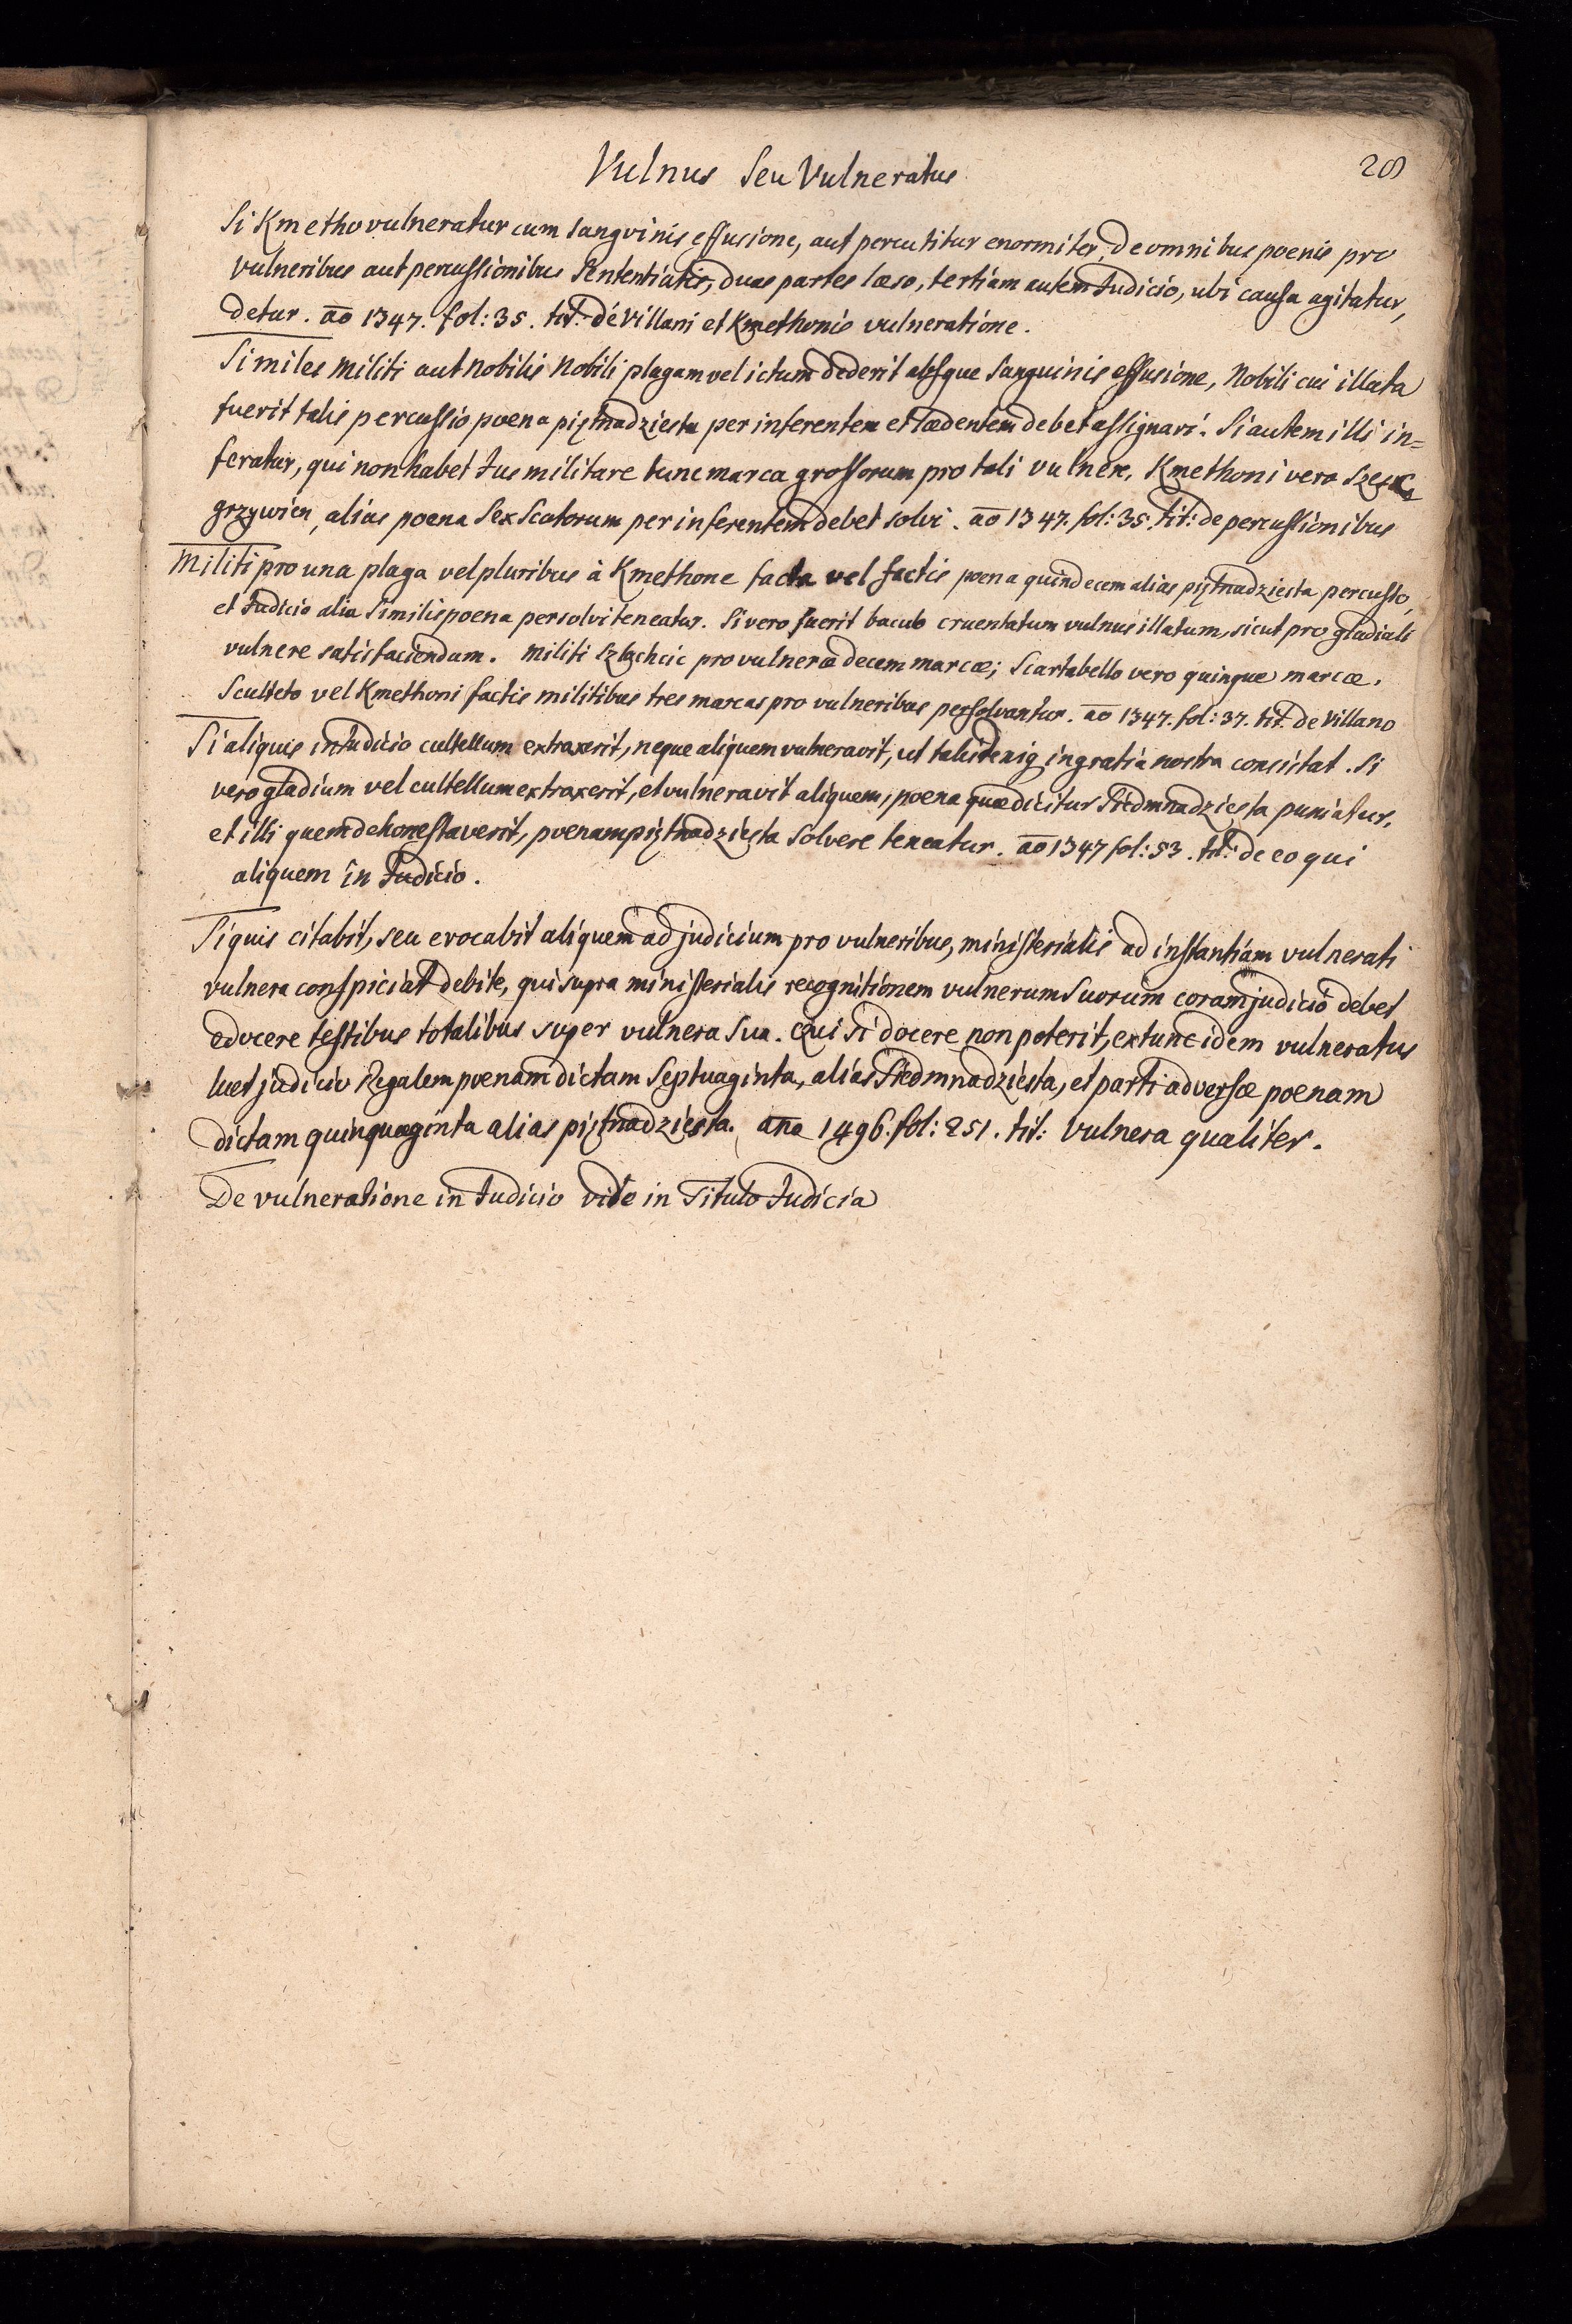 Vulnus seu Vulneratus
208
Si Kmetho vulneratur cum sangvinis effusione, aut percutitur enormiter, de omnibus poenis pro
vulneribus aut percussionibus sententiatis, duas partes læso, tertiam autem Judicio, ubi causa agitatur,
detur. ao 1347. fol: 35. tit: de Villani et Kmethonis vulneratione.
Si miles militi aut nobilis Nobili plagam vel ictum dederit absque sanguinis effusione, Nobili cui illata
fuerit talis percussio poena piętnadziesta per inferentem et lædentem debet assignari. Si autem illi in=
feratur, qui non habet Jus militare tunc marca grossorum pro tali vulnere, Kmethoni vero
grzywien, alias poena sex Scotorum per inferentem debet solvi. ao 1347. fol: 35. tit: de percussionibus
Militi pro una plaga vel pluribus à Kmethone facta vel factis poena quindecem alias piętnadziesta percusso,
et Judicio alia similis poena persolvi teneatur. Si vero fuerit baculo cruentatum vulnus illatum, sicut pro gladiali
vulnere satisfaciendum. Militi szlachcic pro vulnere decem marcæ; Scartabello vero quinque marcæ.
Sculteto vel Kmethoni factis militibus tres marcas pro vulneribus persolvantur. ao 1347. fol: 37. tit. de Villano
Si aliquis in Judicio cultellum extraxerit, neque aliquem vulneravit, ut talis in gratia nostra consistat. Si
vero gladium vel cultellum extraxerit, et vulneravit aliquem, poena quæ dicitur Siedmnadziesta puniatur,
et illi quem dehonestaverit, poenam piętnadziesta solvere teneatur. ao 1347 fol: 53. tit: de eo qui
aliquem in Judicio.
Si quis citabit, seu evocabit aliquem ad judicium pro vulneribus, ministerialis ad instantiam vulnerati
vulnera conspiciat debite, qui supra ministerialis recognitionem vulnerum suorum coram judicio debet
edocere testibus totalibus super vulnera sua. Qui si docere non poterit, extunc idem vulneratus
luet judicio Regalem poenam dictam Septuaginta, alias Siedmnadziesta, et parti adversæ poenam
dictam quinquaginta alias piętnadziesta. ano 1496. fol: 251. tit: vulnera qualiter.
De vulneratione in Judicio vide in Titulo Judicia